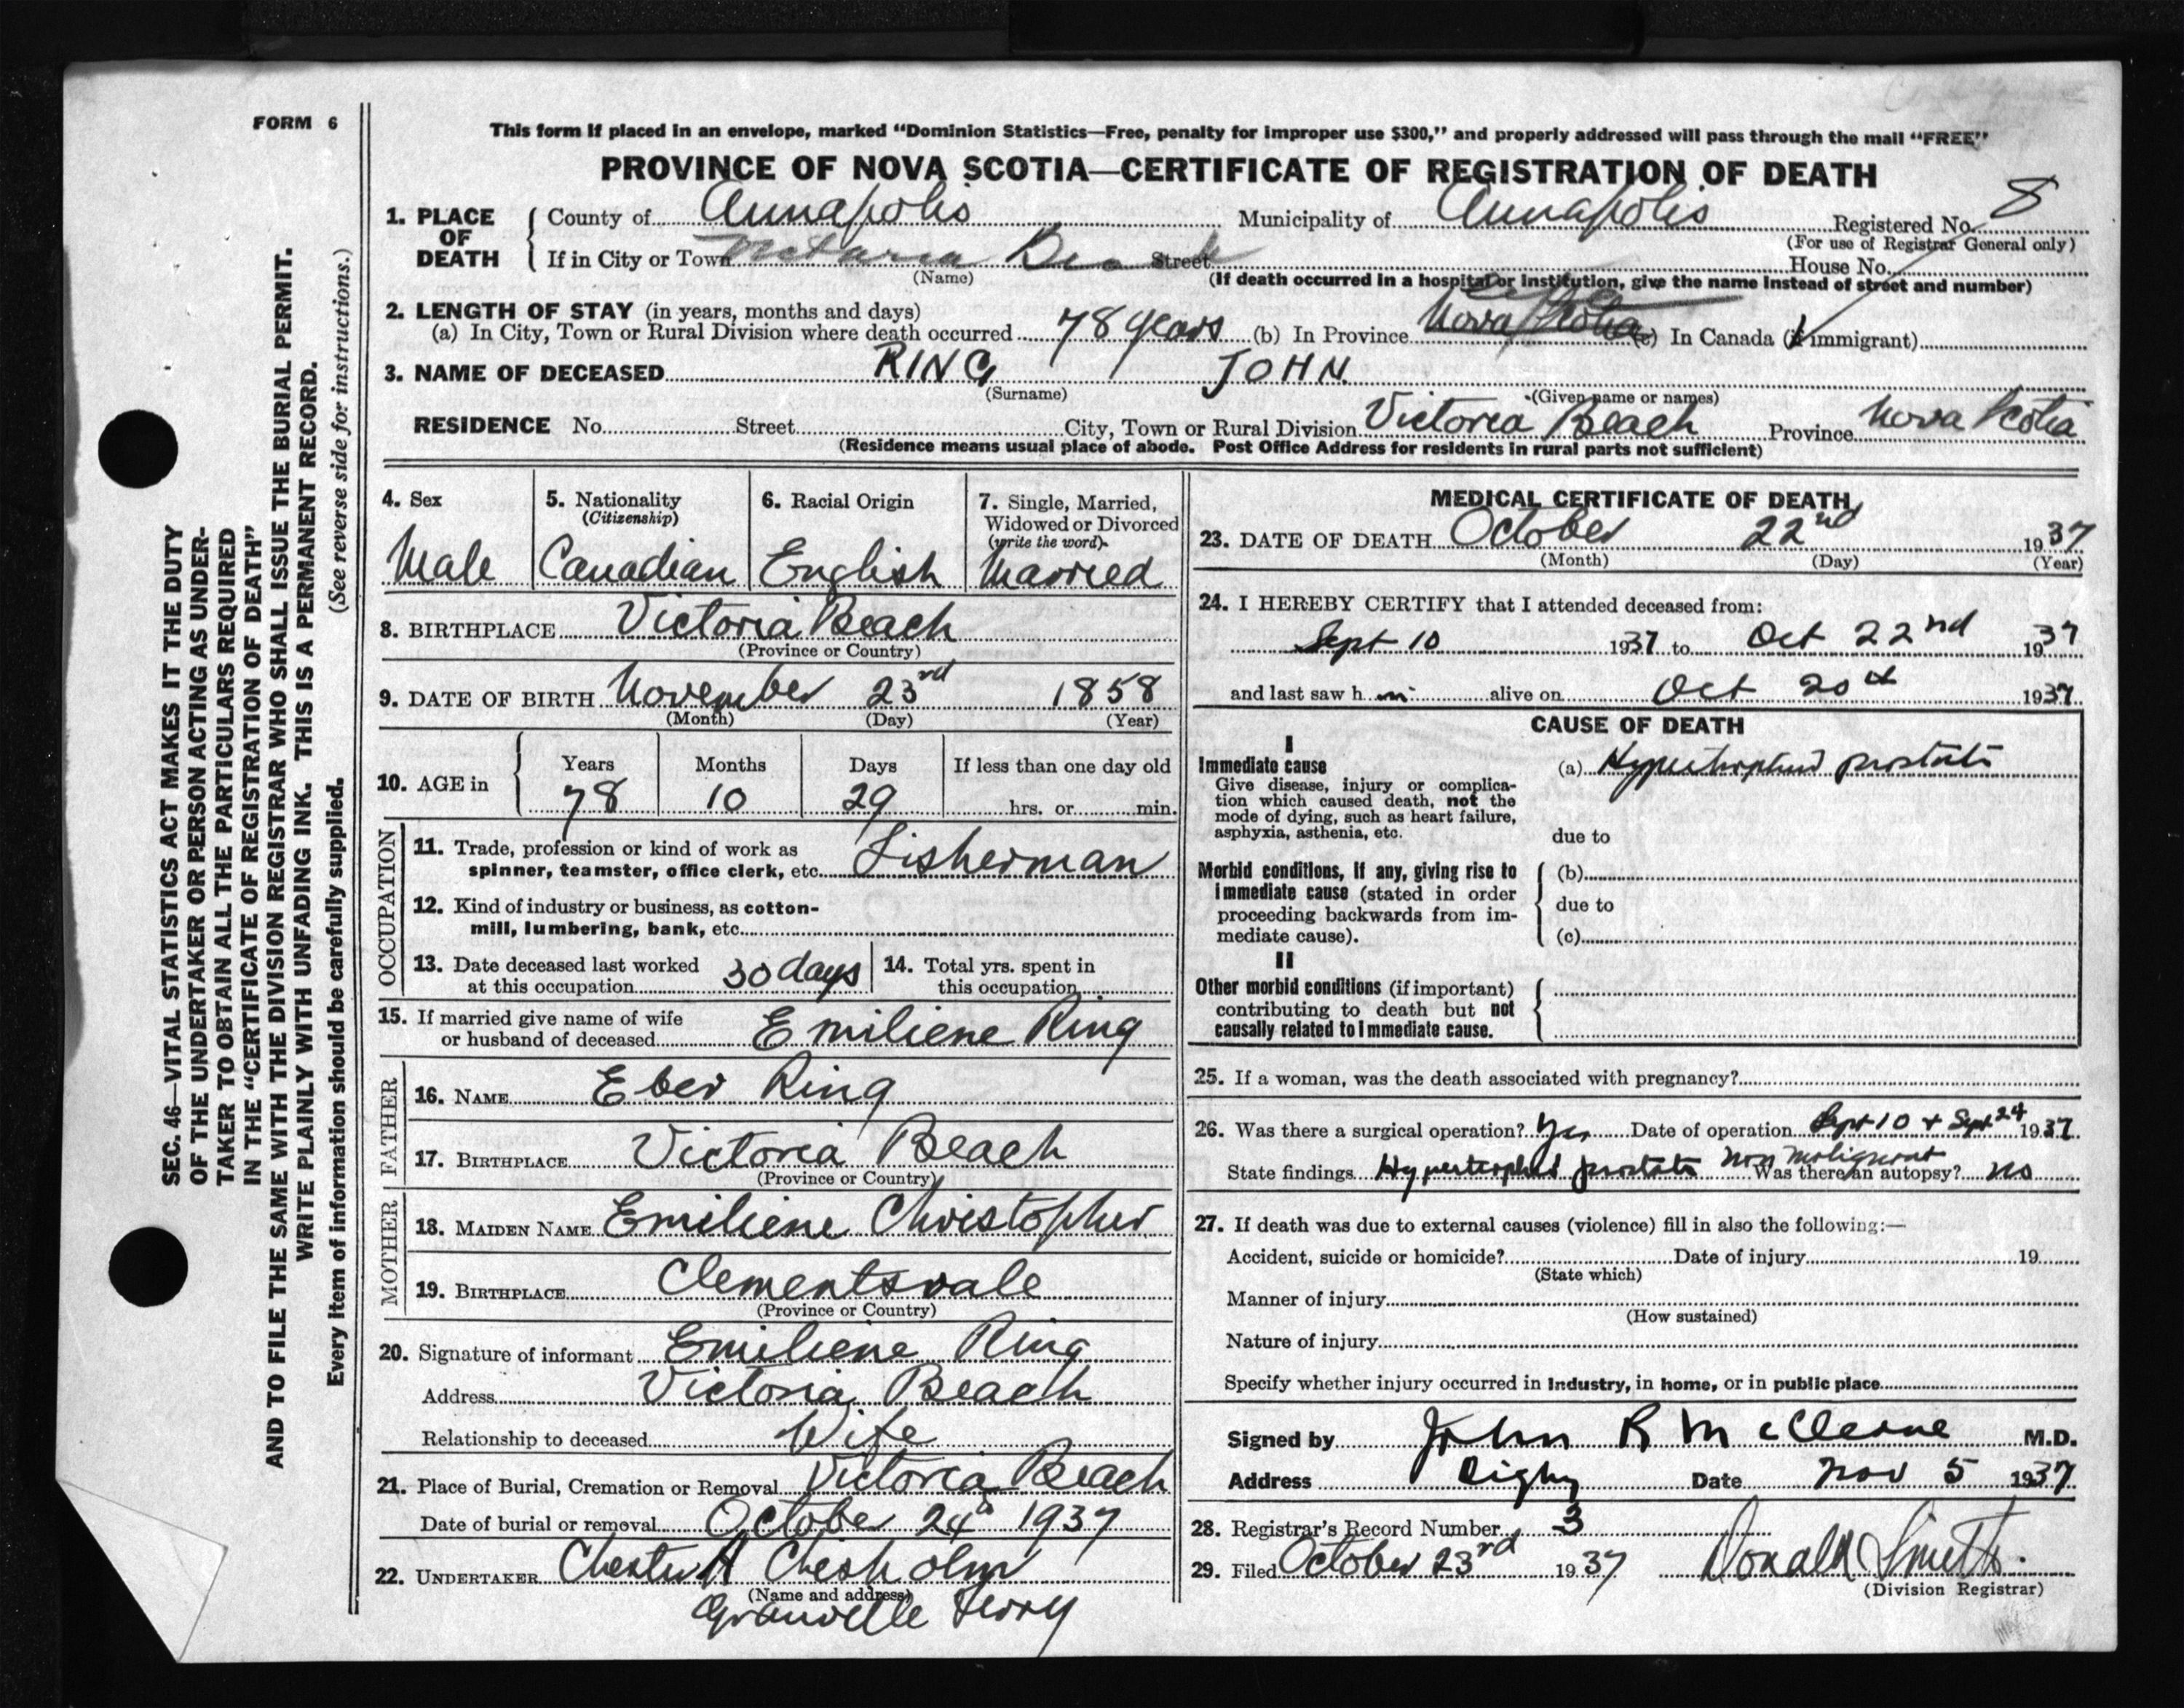 FORM 6
This form if placed in an envelope, marked "Dominion Statistics—Free, penalty for improper use $300," and properly addressed will pass through the mail "FREE"
PROVINCE OF NOVA SCOTIA—CERTIFICATE OF REGISTRATION OF DEATH
1. PLACE OF DEATH County of Annapolis Municipality of Annapolis Registered No. 8
(For use of Registrar General only)
If in City or Town Victoria Beach Street House No.
(Name) (If death occurred in a hospital or institution, give the name instead of street and number)
2. LENGTH OF STAY (in years, months and days)
(a) In City, Town or Rural Division where death occurred 78 years (b) In Province Nova Scotia (c) In Canada (if immigrant)
3. NAME OF DECEASED RING JOHN
(Surname) (Given name or names)
RESIDENCE No. Street City, Town or Rural Division Victoria Beach Province Nova Scotia
(Residence means usual place of abode. Post Office Address for residents in rural parts not sufficient)
4. Sex Male
5. Nationality (Citizenship) Canadian
6. Racial Origin English
7. Single, Married, Widowed or Divorced (write the word) Married
8. BIRTHPLACE Victoria Beach
(Province or Country)
9. DATE OF BIRTH November 23rd 1858
(Month) (Day) (Year)
10. AGE in Years Months Days If less than one day old
78 10 29 hrs. or min.
OCCUPATION
11. Trade, profession or kind of work as
spinner, teamster, office clerk, etc. Fisherman
12. Kind of industry or business, as cotton-
mill, lumbering, bank, etc.
13. Date deceased last worked at this occupation 30 days
14. Total yrs. spent in this occupation
15. If married give name of wife
or husband of deceased Emiliene Ring
FATHER
16. NAME Eber Ring
17. BIRTHPLACE Victoria Beach
(Province or Country)
MOTHER
18. MAIDEN NAME Emiliene Christopher
19. BIRTHPLACE Clementsvale
(Province or Country)
20. Signature of informant Emiliene Ring
Address Victoria Beach
Relationship to deceased Wife
21. Place of Burial, Cremation or Removal Victoria Beach
Date of burial or removal October 24th 1937
22. UNDERTAKER Chester A Chesholm
(Name and address)
Granville Ferry
MEDICAL CERTIFICATE OF DEATH
23. DATE OF DEATH October 22nd 1937
(Month) (Day) (Year)
24. I HEREBY CERTIFY that I attended deceased from:
Sept 10 1937 to Oct 22nd 1937
and last saw h im alive on Oct 20th 1937
CAUSE OF DEATH
I
Immediate cause (a) Hypertrophied prostate
Give disease, injury or complica-
tion which caused death, not the
mode of dying, such as heart failure,
asphyxia, asthenia, etc. due to
Morbid conditions, if any, giving rise to (b)
immediate cause (stated in order due to
proceeding backwards from im-
mediate cause). (c)
II
Other morbid conditions (if important)
contributing to death but not
causally related to immediate cause.
25. If a woman, was the death associated with pregnancy?
26. Was there a surgical operation? Yes Date of operation Sept 10 + Sept 24 1937
State findings Hypertrophied prostate non malignant Was there an autopsy? no
27. If death was due to external causes (violence) fill in also the following:—
Accident, suicide or homicide? Date of injury 19
(State which)
Manner of injury
(How sustained)
Nature of injury
Specify whether injury occurred in industry, in home, or in public place
Signed by John R McCleave M.D.
Address Digby Date Nov 5 1937
28. Registrar's Record Number 3
29. Filed October 23rd 1937 Donald Smith
(Division Registrar)
SEC. 46—VITAL STATISTICS ACT MAKES IT THE DUTY
OF THE UNDERTAKER OR PERSON ACTING AS UNDER-
TAKER TO OBTAIN ALL THE PARTICULARS REQUIRED
IN THE "CERTIFICATE OF REGISTRATION OF DEATH"
AND TO FILE THE SAME WITH THE DIVISION REGISTRAR WHO SHALL ISSUE THE BURIAL PERMIT.
WRITE PLAINLY WITH UNFADING INK. THIS IS A PERMANENT RECORD.
Every item of information should be carefully supplied.
(See reverse side for instructions.)